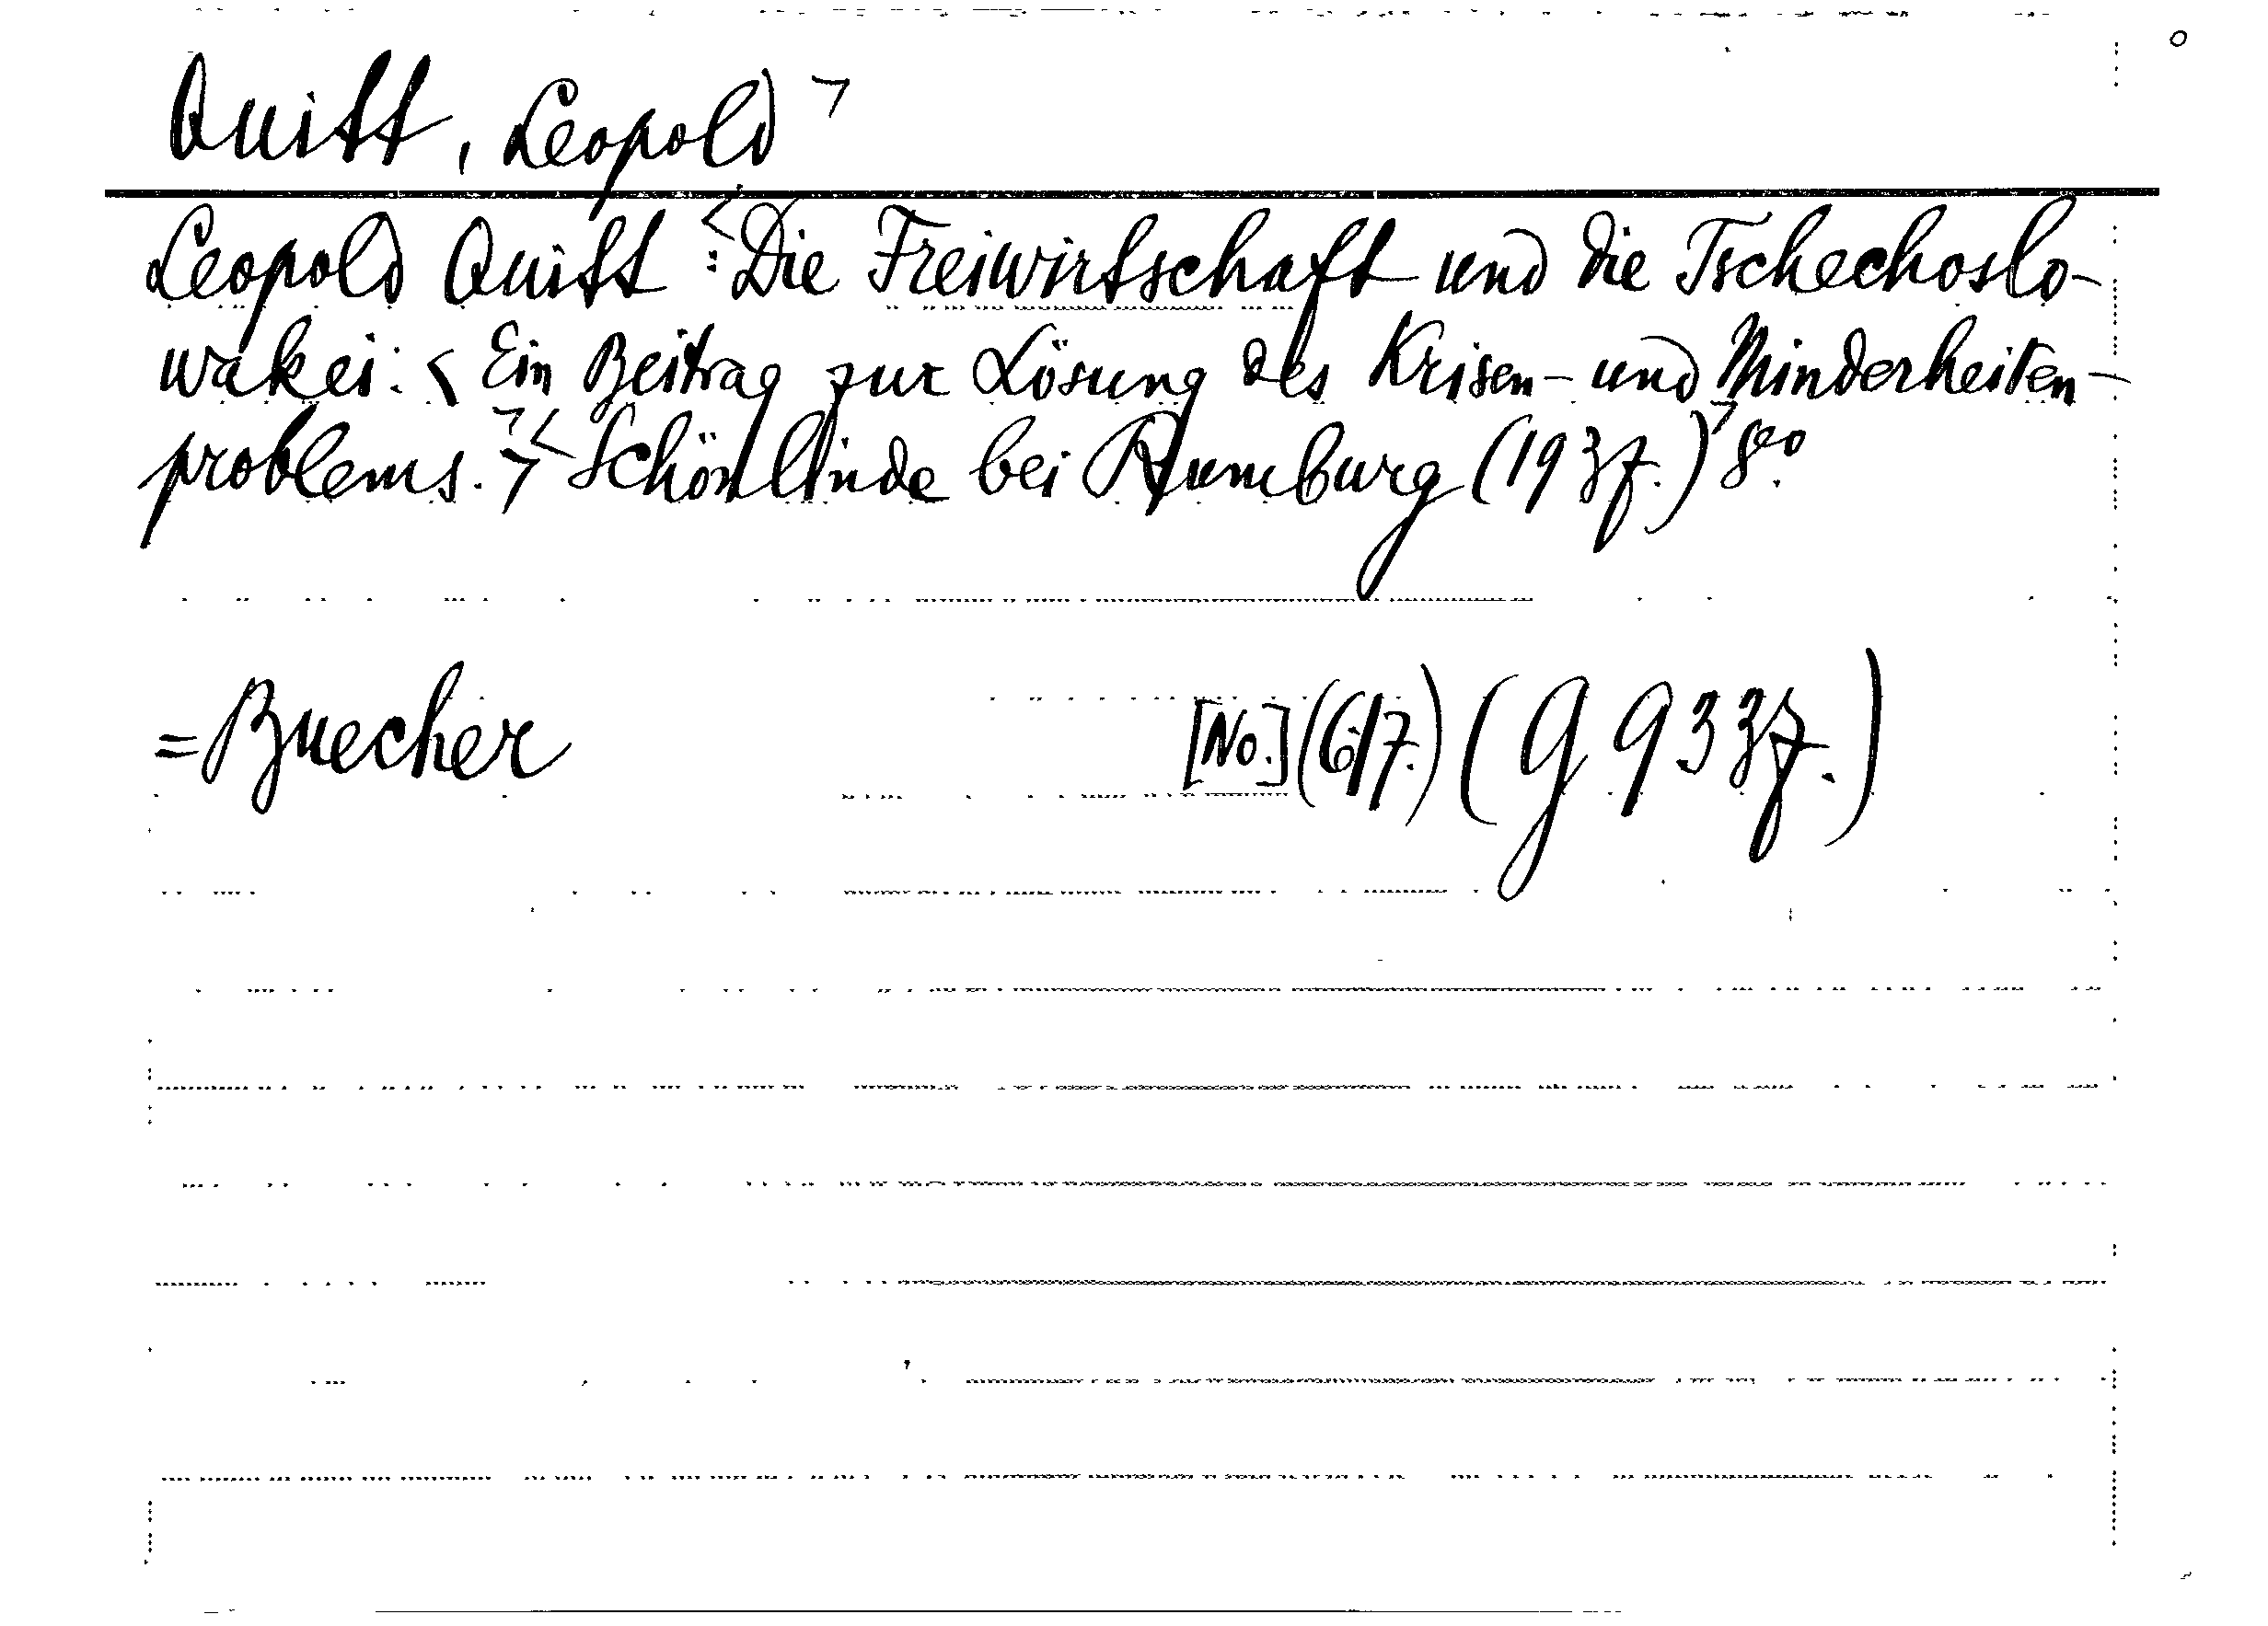 Quitt, Leopold ┐
Leopold Quitt <: Die Freiwirtschaft und die Tschechoslo-
wakei: < Ein Beitrag zur Lösung des Krisen- und Minderheiten-
problems. > < Schönlinde bei Rumburg (1937.) > 8vo.
= Buecher [No.] (6/7.) (G 9337.)